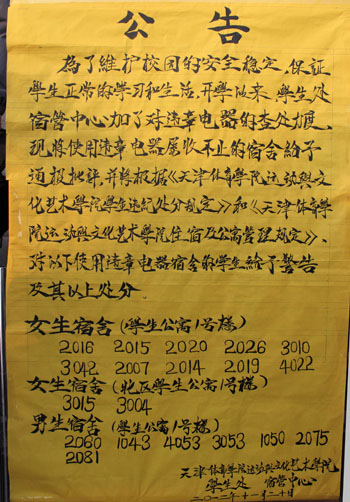 公 告
為了維护校园的安全稳定，保証
学生正常的学习和生活，开學以来，學生处
宿管中心加了对违章电器的查处力度，
现將使用违章电器屡收不止的宿舍給予
通报批評，并将根据《天津体育學院运动與文
化艺术學院學生违紀处分规定》和《天津体育學
院运动與文化艺术學院住宿及公寓管理规定》，
对以下使用违章电器宿舍的學生給予警告
及其以上处分。
女生宿舍（學生公寓1号樓）
2016 2015 2020 2026 3010
3042 2007 2014 2019 4022
女生宿舍（北辰學生公寓1号樓）
3015 3004
男生宿舍（學生公寓1号樓）
2060 1043 4053 3053 1050 2075
2081
天津体育學院运动與文化艺术學院
學生处 宿管中心
二〇一二年十一月二十日